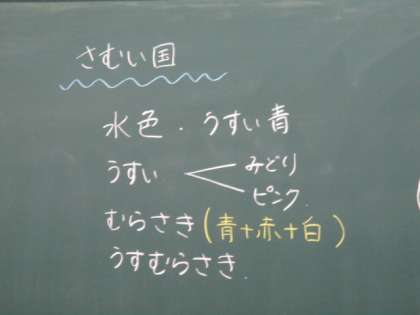 さむい国
水色・うすい青
うすい
みどり
ピンク.
むらさき(青+赤+白)
うすむらさき.